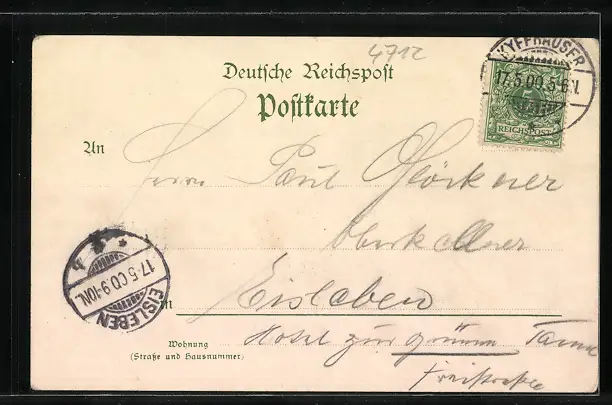 4712
KYFFHÄUSER
17.5.00.5-6N.
REICHSPOST
Deutsche Reichspost
Postkarte
An Herrn Paul Glöckner
Oberkellner
in Eisleben
Wohnung
(Straße und Hausnummer)
Hotel zur grünen Tanne
Freistraße
17.5.00.9-10N.
EISLEBEN